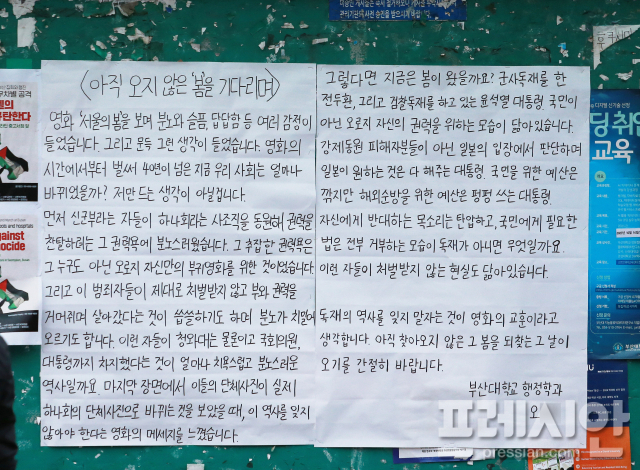 <아직 오지 않은 '봄'을 기다리며>
영화 '서울의 봄'을 보며 분노와 슬픔, 답답함 등 여러 감정이
들었습니다. 그리고 문득 그런 생각이 들었습니다. 영화의
시간에서부터 벌써 40년이 넘은 지금 우리 사회는 얼마나
바뀌었을까? 저만 드는 생각이 아닐겁니다.
먼저 신군부라는 자들이 하나회라는 사조직을 동원해 권력을
찬탈하려는 그 권력욕에 분노스러웠습니다. 그 추잡한 권력욕은
그 누구도 아닌 오로지 자신만의 부귀영화를 위한 것이었습니다.
그리고 이 범죄자들이 제대로 처벌받지 않고 부와 권력을
거머쥐며 살아갔다는 것이 씁쓸하기도 하며 분노가 치밀어
오르기도 합니다. 이런 자들이 청와대는 물론이고 국회의원,
대통령까지 차지했다는 것이 얼마나 치욕스럽고 분노스러운
역사일까요. 마지막 장면에서 이들의 단체사진이 실제
하나회의 단체사진으로 바뀌는 것을 보았을 때, 이 역사를 잊지
않아야 한다는 영화의 메세지를 느꼈습니다.
그렇다면 지금은 봄이 왔을까요? 군사독재를 한
전두환, 그리고 검찰독재를 하고 있는 윤석열 대통령 국민이
아닌 오로지 자신의 권력을 위하는 모습이 닮아있습니다.
강제동원 피해자분들이 아닌 일본의 입장에서 판단하며
일본이 원하는 것은 다 해주는 대통령. 국민을 위한 예산은
깎지만 해외순방을 위한 예산은 펑펑 쓰는 대통령
자신에게 반대하는 목소리는 탄압하고, 국민에게 필요한
법은 전부 거부하는 모습이 독재가 아니면 무엇일까요.
이런 자들이 처벌받지 않는 현실도 닮아있습니다.
독재의 역사를 잊지 말자는 것이 영화의 교훈이라고
생각합니다. 아직 찾아오지 않은 그 봄을 되찾는 그 날이
오기를 간절히 바랍니다.
부산대학교 행정학과
오
프레시안
pressian.com
against
교육